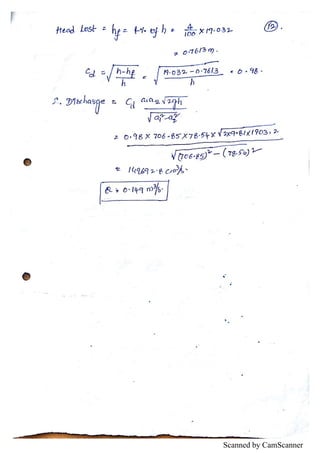 12.
Head Lost = hf = 4% of h = 4/100 × 19.032
= 0.7613m.
Cd = √(h-hf / h) = √(19.032 - 0.7613 / h) = 0.98.
S. Discharge = Cd a1a2√2gh / √a1²-a2²
= 0.98 × 706.85 × 78.54 × √2×9.81×1903.2 / √(706.85)² - (78.54)²
= 149692.8 cm³/s.
Q = 0.149 m³/s.
Scanned by CamScanner